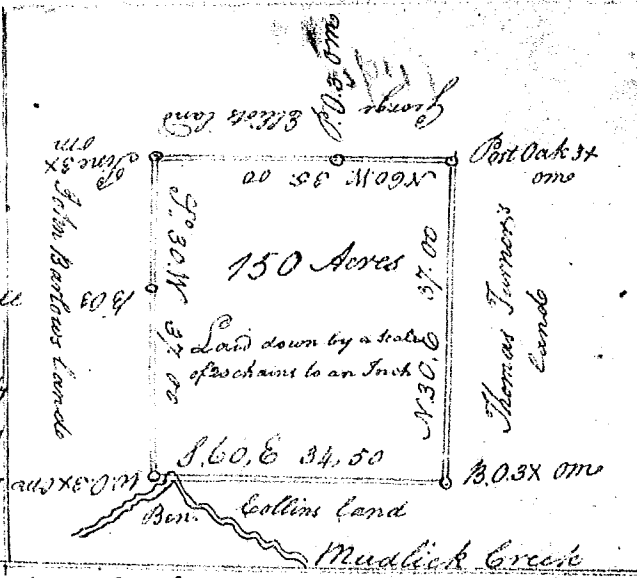 P.O. 3x om
George Elliots land
Pine 3x
om
Post Oak 3x
om
N60W 35 00
John Barlows land
B03
S. 30 W 37. 00
150 Acres
Laid down by a scale
of 20 chains to an Inch
N 30. E 37. 00
Thomas Turner's
land
S. 60, E 34, 50
W.O. 3x om
B.O. 3X om
Ben. Collins land
Mudlick Creek